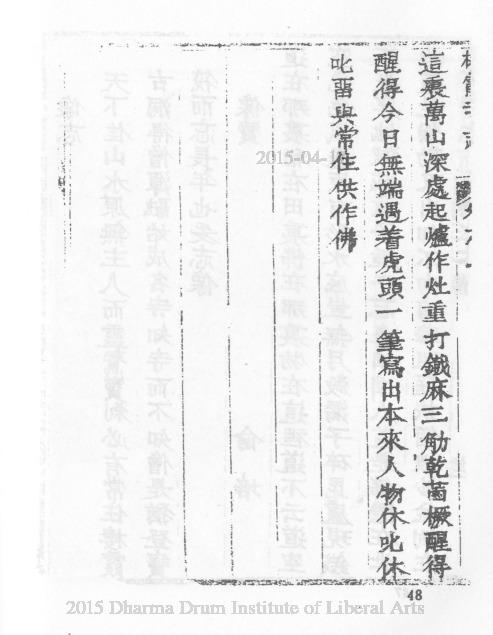 這裏萬山深處起爐作灶重打鐵麻三觔乾菌橛醒得
醒得今日無端遇着虎頭一筆寫出本來人物休叱休
叱畱與常住供作佛
2015-04-1
48
2015 Dharma Drum Institute of Liberal Arts